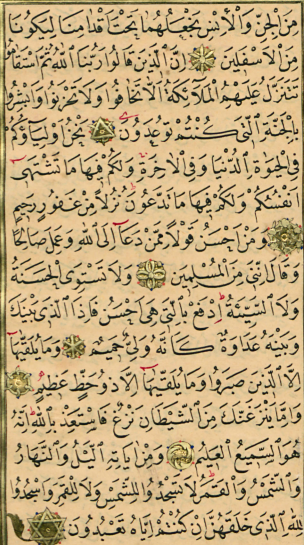 مِنَ ٱلْجِنِّ وَٱلْإِنسِ نَجْعَلْهُمَا تَحْتَ أَقْدَامِنَا لِيَكُونَا
مِنَ ٱلْأَسْفَلِينَ إِنَّ ٱلَّذِينَ قَالُوا رَبُّنَا ٱللَّهُ ثُمَّ ٱسْتَقَامُوا
تَتَنَزَّلُ عَلَيْهِمُ ٱلْمَلَآئِكَةُ أَلَّا تَخَافُوا وَلَا تَحْزَنُوا وَأَبْشِرُوا
بِٱلْجَنَّةِ ٱلَّتِي كُنْتُمْ تُوعَدُونَ نَحْنُ أَوْلِيَآؤُكُمْ
فِي ٱلْحَيٰوةِ ٱلدُّنْيَا وَفِي ٱلْآخِرَةِ وَلَكُمْ فِيهَا مَا تَشْتَهِي
أَنْفُسُكُمْ وَلَكُمْ فِيهَا مَا تَدَّعُونَ نُزُلًا مِنْ غَفُورٍ رَحِيمٍ
وَمَنْ أَحْسَنُ قَوْلًا مِمَّنْ دَعَآ إِلَى ٱللَّهِ وَعَمِلَ صَالِحًا
وَقَالَ إِنَّنِي مِنَ ٱلْمُسْلِمِينَ وَلَا تَسْتَوِي ٱلْحَسَنَةُ
وَلَا ٱلسَّيِّئَةُ ٱدْفَعْ بِٱلَّتِي هِيَ أَحْسَنُ فَإِذَا ٱلَّذِي بَيْنَكَ
وَبَيْنَهُ عَدَاوَةٌ كَأَنَّهُ وَلِيٌّ حَمِيمٌ وَمَا يُلَقَّيٰهَآ
إِلَّا ٱلَّذِينَ صَبَرُوا وَمَا يُلَقَّيٰهَآ إِلَّا ذُو حَظٍّ عَظِيمٍ
وَإِمَّا يَنْزَغَنَّكَ مِنَ ٱلشَّيْطَانِ نَزْغٌ فَٱسْتَعِذْ بِٱللَّهِ إِنَّهُ
هُوَ ٱلسَّمِيعُ ٱلْعَلِيمُ وَمِنْ آيَاتِهِ ٱلَّيْلُ وَٱلنَّهَارُ
وَٱلشَّمْسُ وَٱلْقَمَرُ لَا تَسْجُدُوا لِلشَّمْسِ وَلَا لِلْقَمَرِ وَٱسْجُدُوا
لِلَّهِ ٱلَّذِي خَلَقَهُنَّ إِنْ كُنْتُمْ إِيَّاهُ تَعْبُدُونَ